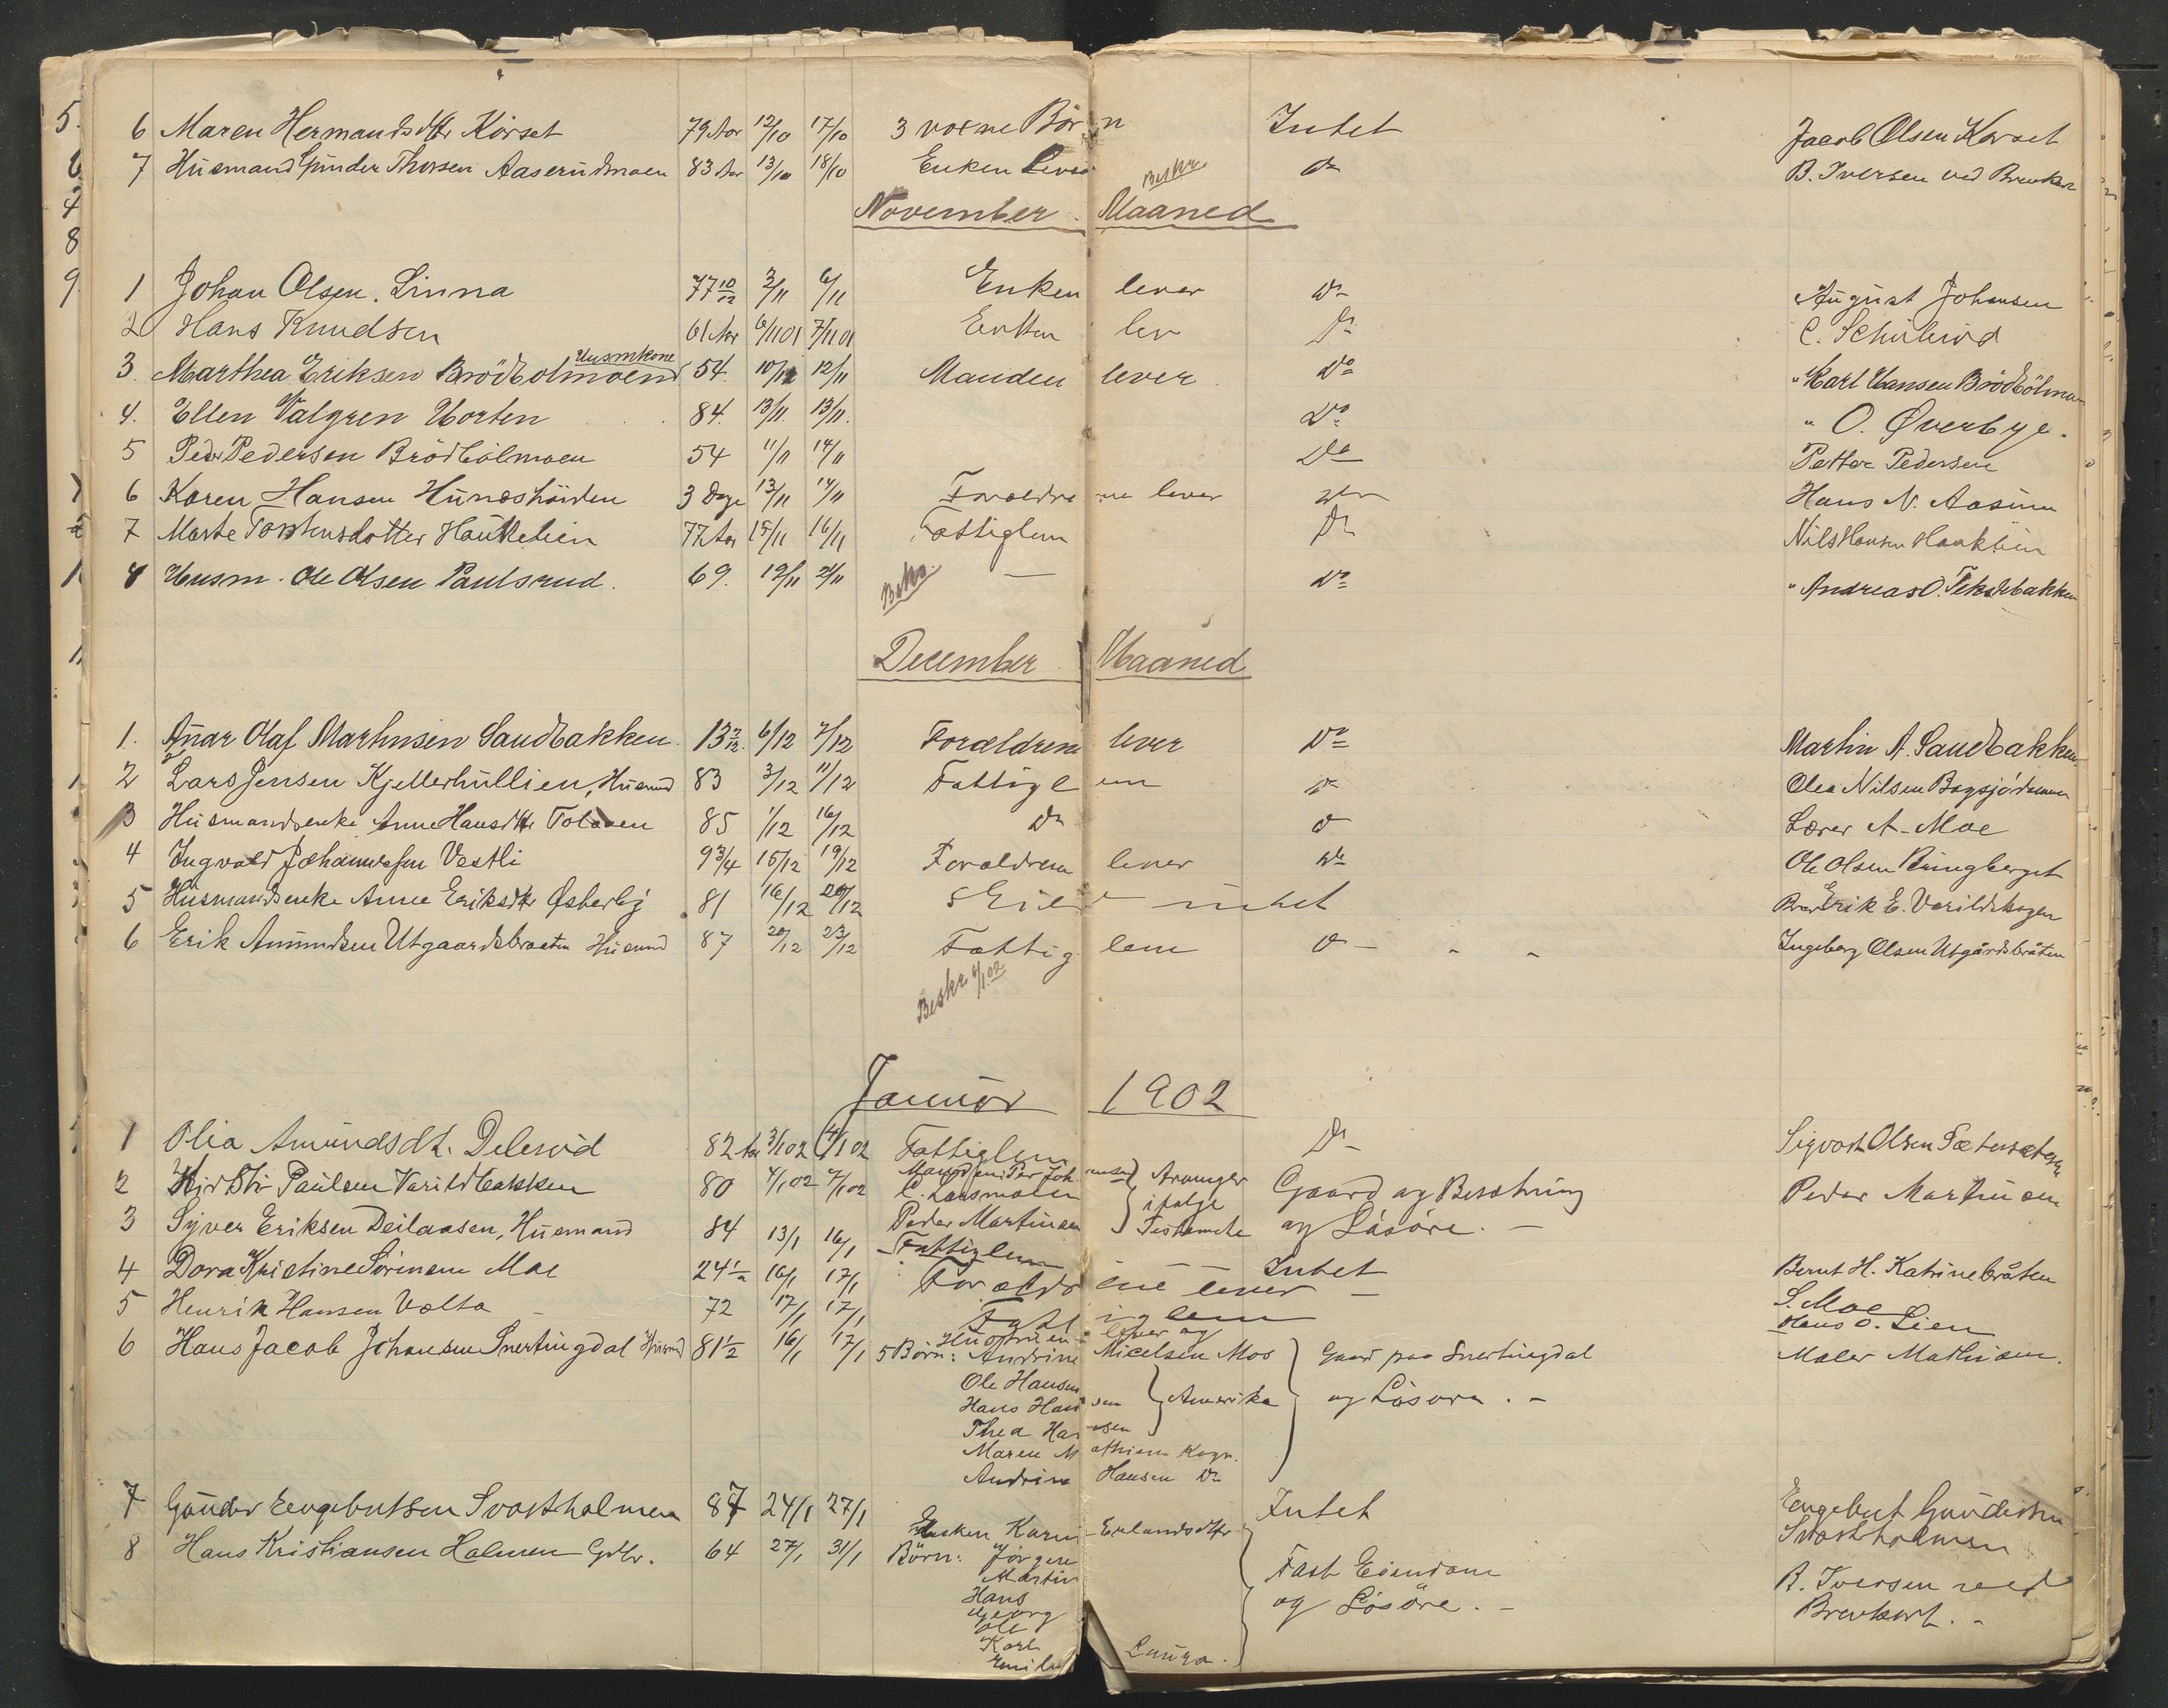 6 Maren Hermandsdtr Körset 79 Aar 12/10 17/10 3 voxne Börn Intet Jacob Olsen Körset
7 Husmand Gunder Thorsen Aaserudmoen 83 Aar 13/10 18/10 Enken Lever Beskr Do B. Iversen ved Brevkort
November Maaned
1 Johan Olsen Linna 77 10/12 2/11 6/11 Enken lever Do August Johansen
2 Hans Knudsen 61 Aar 6/11 01 7/11 01 Enken lev Do C. Schulerud
3 Marthea Eriksen Brödbölmoend Husmkone 54 10/11 12/11 Manden lever Do Karl Hansen Brödbölmoen
4. Ellen Valgren Horten 84. 13/11 13/11. Do " O. Øverbye.
5 Peder Pedersen Brödbölmoen 54 11/11 14/11 Do Petter Pedersen
6 Karen Hansen Hunæshöiden 3 Dage 13/11 14/11 Forældrene lever Do Hans N. Aasum
7 Marte Torstensdotter Haukelien 77 Aar 15/11 16/11 Fattiglem Do Nils Hansen Haaklien
8 Husm. Ole Olsen Paulsrud. 69. 19/11 21/11 Beskr. — Do " Andreas O.
December Maaned
1. Gunar Olaf Marthinsen Sandbakken. 13 6/12 7/12 Forældrene lever Do Martin A. Sandbakken.
2 Lars Jensen Kjellerhullien, Husmd 83 3/12 11/12 Fattiglem Do Olea Nilsen
3 Husmandsenke Anne Hansdtr Toloven 85 1/12 16/12 Do Do Lærer A. Moe
4 Ingvald Johannesen Vestli 9 3/4 15/12 19/12 Forældrene lever Do Ole Olsen Ringberget
5 Husmandsenke Anne Eriksdtr Østerby 81 16/12 20/12 Eier intet Erik E. Varildskogen
6 Erik Amundsen Utgaardsbraaten Husmd 87 20/12 23/12 Fattiglem Do - - - Ingeborg Olsen Utgårdsbråten
Beskr 4/1.02
Januar 1902
1 Olia Amundsdt. Delerud 82 Aar 3/1 02 4/1 02 Fattiglem Do Sigvart Olsen
2 Kirsti Paulsen Varildbakken 80 4/1 02 7/1 02 Manden: Per Johansen
L. Larsmoen
Peder Martinsen } Arvinger ifølge Testamente Gaard og Besætning og Lösöre. — Peder Martinsen
3 Syver Eriksen Deilaasen, Husmand 84 13/1 16/1 Fattiglem Intet Bernt H. Katrinebråten
4 Dora Kristine Sörensen Moe 24 1/2 16/1 17/1 Forældrene lever — S. Moe
5 Henrik Hansen Volta 72 17/1 17/1 Fattiglem Hans O. Lien
6 Hans Jacob Johansen Snertingdal Husmd 81 1/2 16/1 17/1 Hustruen lever og
5 Börn: Andrine Micelsen Mos } Gaard paa Snertingdal Maler Mathisen.
Ole Hansen
Hans Hansen } Amerika og Lösöre. -
Thea Hansen
Maren Mathisen Kogn.
Andrine Hansen Do
7 Gunder Engebretsen Svartholmen 87 24/1 27/1 Intet Engebret Gundersen Svartholmen
8 Hans Kristiansen Holmen Gdbr. 64 27/1 31/1 Enken Karen Erlandsdtr
Börn: Jörgen
Martin } Fast Eiendom R. Iversen ved
Hans og Lösöre. - Brevkort. -
Georg
Ole
Karl
Emil
Laura.